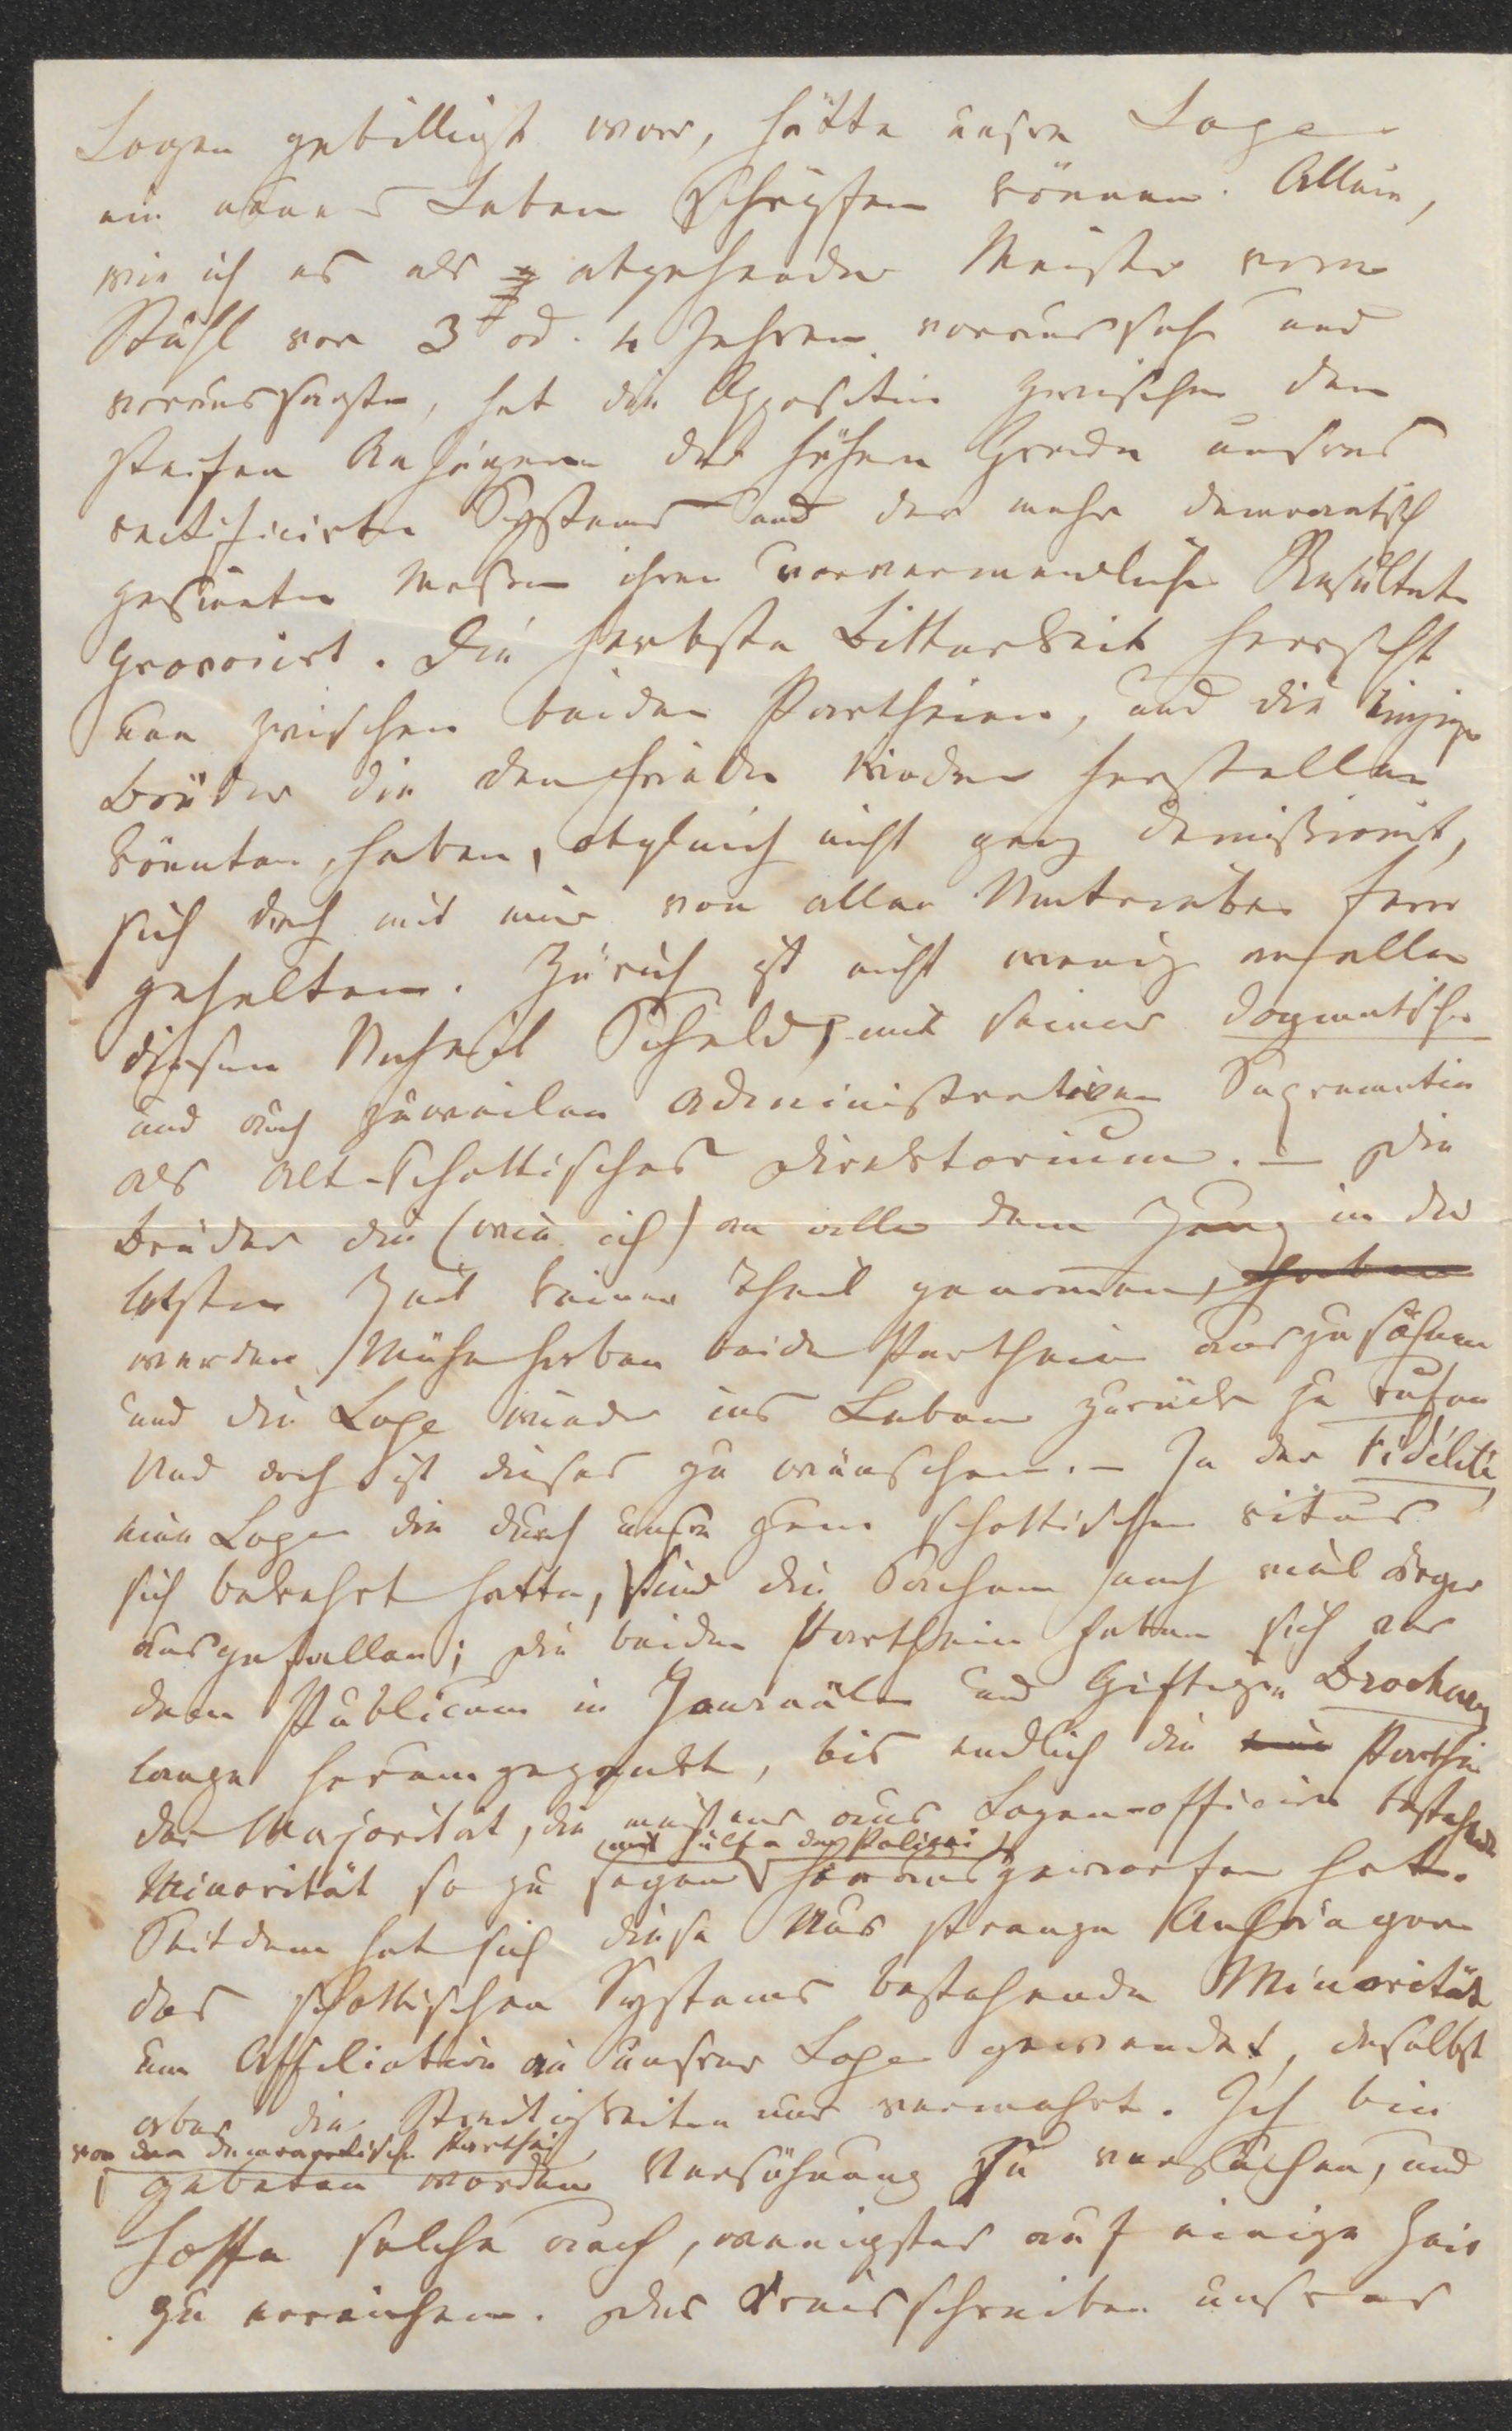 Logen gebilligt war, hätte unsre Loge
ein neues Leben schöpfen können. Allein,
wie ich es als abgehender Meister vom
Stuhl vor 3 od. 4 Jahren voraussah und
voraussagte, hat die Opposition zwischen den
steifen Anhängern der höhern Grade unsres
rectificirten Systems und der mehr democratisch
gesinnten Massen ihren unvermeidlichen Resultat
provocirt. Die herbste Bitterkeit herrscht
nun zwischen beiden Partheien, und die einzigen
Brüder die den Frieden wieder herstellen
könnten, haben, obgleich nicht ganz demissionirt,
sich doch mit mir von allen Umtrieben fern
gehalten. Zürich ist nicht wenig an allen
diesem Unheil Schuld, mit seiner dogmatischen
und auch zuweilen administrativen Suprematie
als Alt-Schottisches Direktorium. — Die
Brüder die (wie ich) an alle dem Zeug in der
letzten Zeit keinen Theil genommen, haben
werden Mühe haben beide Partheien auszusöhnen
und die Loge wieder ins Leben zurück zu rufen
Und doch ist dieses zu wünschen. — In der Fidélité
eine Loge die durch unsre zum schottischen ritus
sich bekehrt hatte, sind die Sachen noch viel ärger
ausgefallen; die beiden Partheien haben sich vor
dem Publicum in Journälen und giftigen Brochuren
lange herumgezankt, bis endlich die eine Parthei
der Majorität, die meistens aus Logen-officiren bestehende
mit Hülfe der Polizei
Minorität so zu sagen herausgeworfen hat.
Seitdem hat sich diese aus strengen Anhängern
des schottischen Systems bestehende Minorität
um Affiliation an unsrer Loge gewendet, daselbst
aber die Streitigkeiten nur vermehrt. Ich bin
von der democratischen Parthei
gebeten worden Versöhnung zu versuchen, und
hoffe solche auch, wenigstens auf einige Zeit
zu erreichen. Das Kreisschreiben unsrer